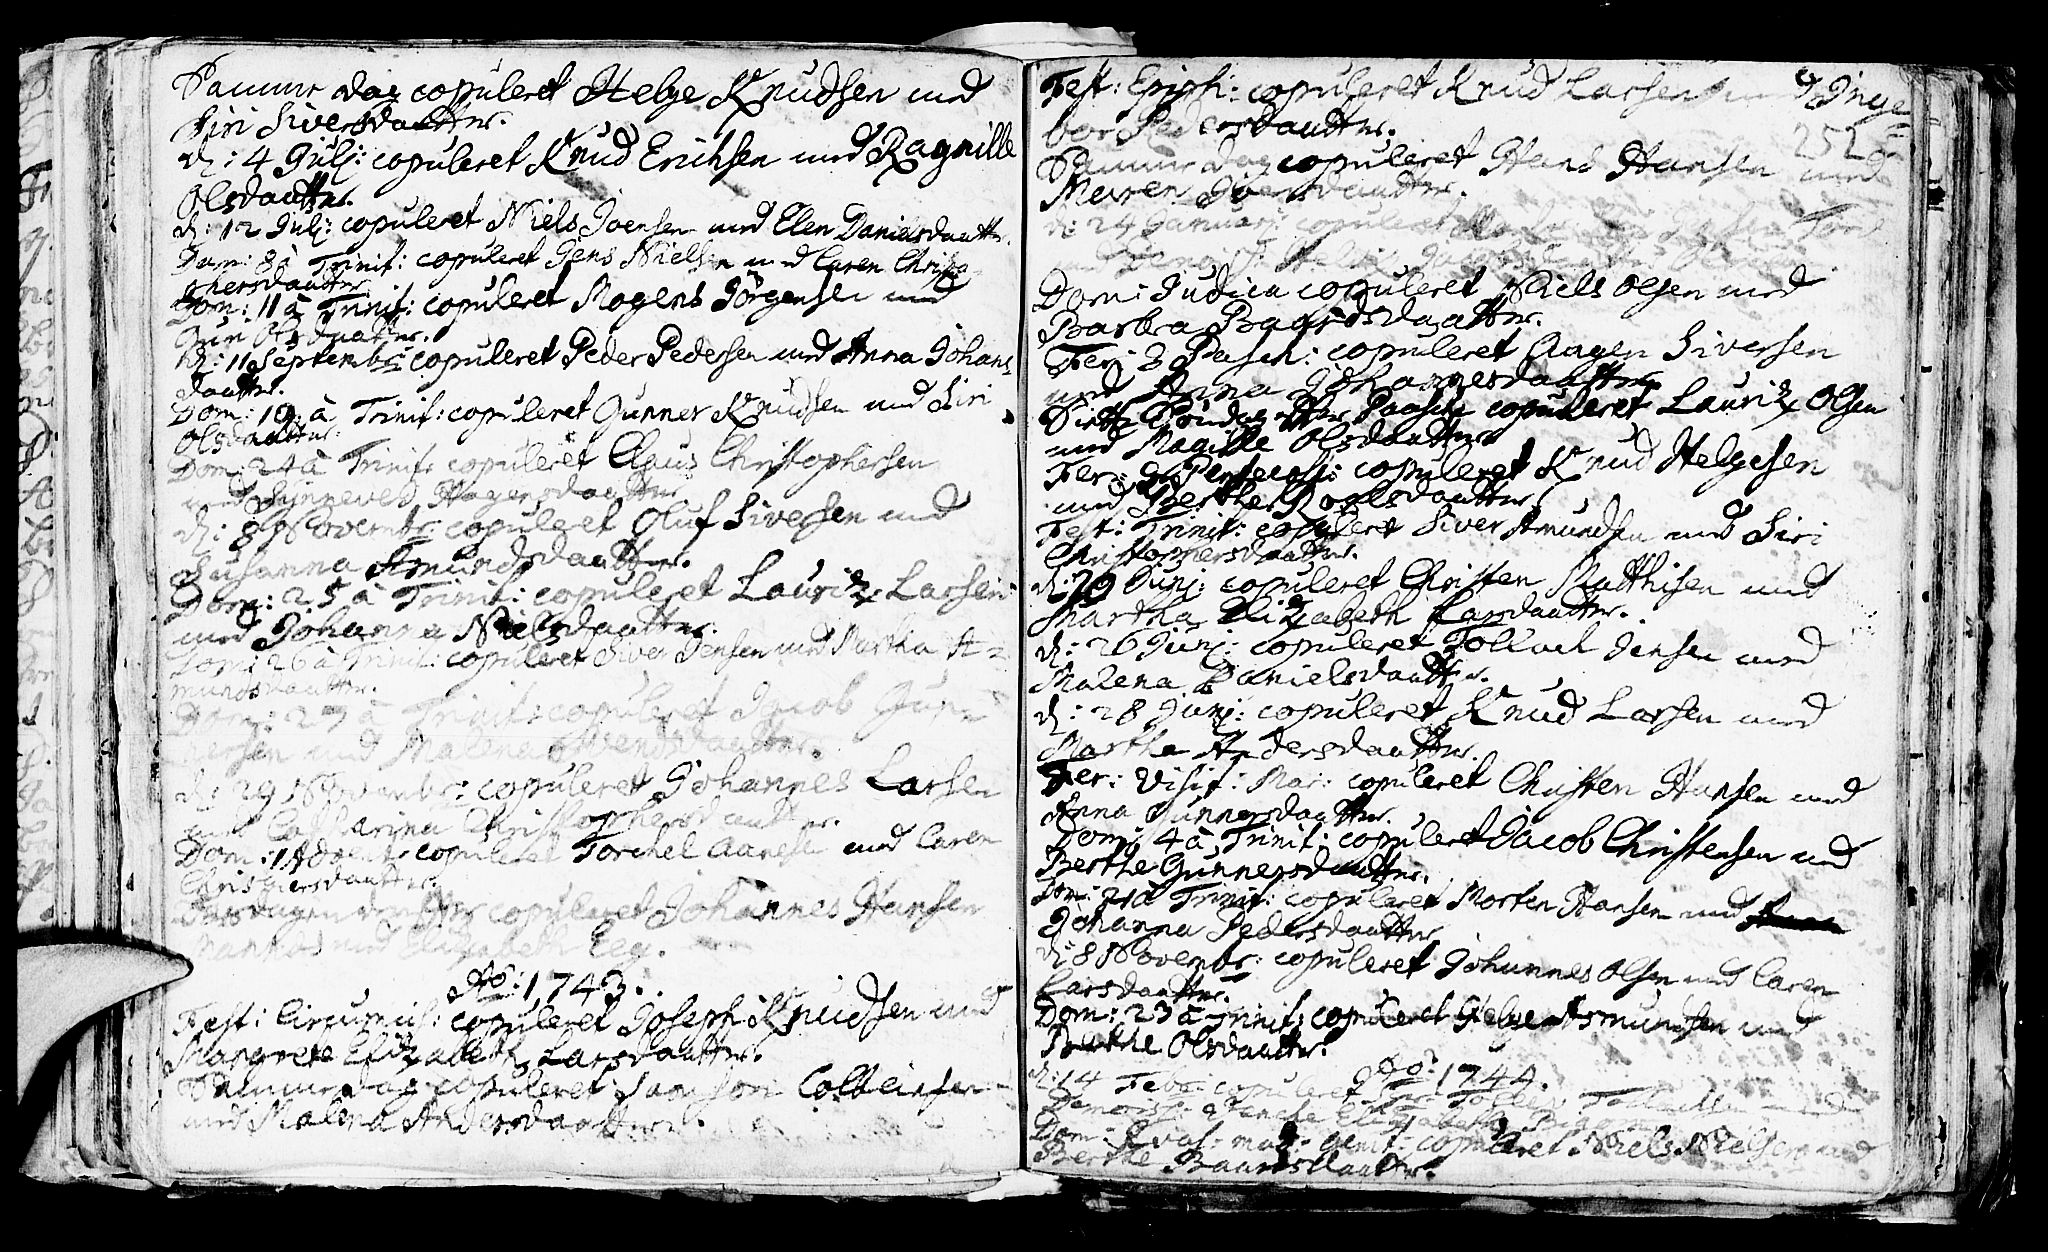 Samme dag copuleret Helge Knudsen med
Siri Siversdaatter.
d: 4 Julj: copuleret Knud Erichsen med Ragnille
Olsdaatter.
d: 12 Julj: copuleret Niels Joensen med Elen Danielsdaatter.
Dom: 8 à Trinit: copuleret Jens Nielsen med Caren Christo-
phersdaatter
Dom: 11 à Trinit: copuleret Mogens Jørgensen med
Guri Olsdaatter.
d: 11 Septembr: copuleret Peder Pedersen med Anna Johans
daatter.
Dom: 19 à Trinit: copuleret Gunner Knudsen med Siri
Olsdaatter.
Dom: 24 à Trinit: copuleret Claus Christophersen
med Synneved Aagensdaatter
d: 8 Novembr: copuleret Oluf Siversen med
Susanna Amundsdaatter.
Dom: 25 à Trinit: copuleret Lauritz Larsen
med Johanna Nielsdaatter.
Dom: 26 à Trinit: copuleret Siver Jensen med Martha A=
mundsdaatter.
Dom: 27 à Trinit: copuleret Jacob Gun=
nersen med Malena Svendsdaatter.
d: 29 Novembr: copuleret Johannes Larsen
med Catharina Christophersdaatter.
Dom: 1 Advent: copuleret Torchel Aanesen med Caren
Christophersdaatter.
Tiisdagen derefter copuleret Johannes Hansen
med Elizabeth Eeg.
Ao: 1743.
Fest: Circumcis: copuleret Joseph Knudsen med
Margrete Elizabeth Larsdaatter.
Samme dag copuleret Colbeinsen
med Malena Andersdaatter.
Fest: Epiph: copuleret Knud Larsen med Inge=
bor Pedersdaatter.
252
Samme dag copuleret Hans Hansen med
Maren Joensdaatter.
d: 24 Januarj: copuleret
Dom: Judica copuleret Niels Olsen med
Barbra Baardsdaatter.
Ferj: 3 Pasch: copuleret Aagen Siversen
med Anna Johannesdaatter.
Siette Søndag efter Paaske copuleret Lauritz Olsen
med Magille Olsdaatter
Fer: 3 Pentecost: copuleret Knud Helgesen
med Berthe Poulsdaatter
Fest: Trinit: copuleret Siver Amundsen med Siri
Christophersdaatter.
d: 20 Junj: copuleret Christen Matthisen med
Martha Elizabeth Larsdaatter.
d: 26 Junj: copuleret Tollach Jensen med
Malena Danielsdaatter.
d: 28 Junj: copuleret Knud Larsen med
Martha Andersdaatter.
Fer: Visit: Mar: copuleret Christen Hansen med
Anna Gunnersdaatter.
Dom: 4 à Trinit: copuleret Jacob Christensen med
Berthe Gunnersdaatter.
Dom: 21 à Trinit: copuleret Morten Hansen med
Johanna Pedersdaatter
d: 8 Novembr: copuleret Johannes Olsen med Caren
Larsdaatter.
Dom: 23 à Trinit: copuleret Helge Asmundsen med
Berthe Olsdaatter.
Ao: 1744.
d: 14 Febr: copuleret Tollachsen med
Elizabeth
Dom: Qvasi mod: genit: copuleret Niels Nielsen med
Berthe Baardsdaatter.